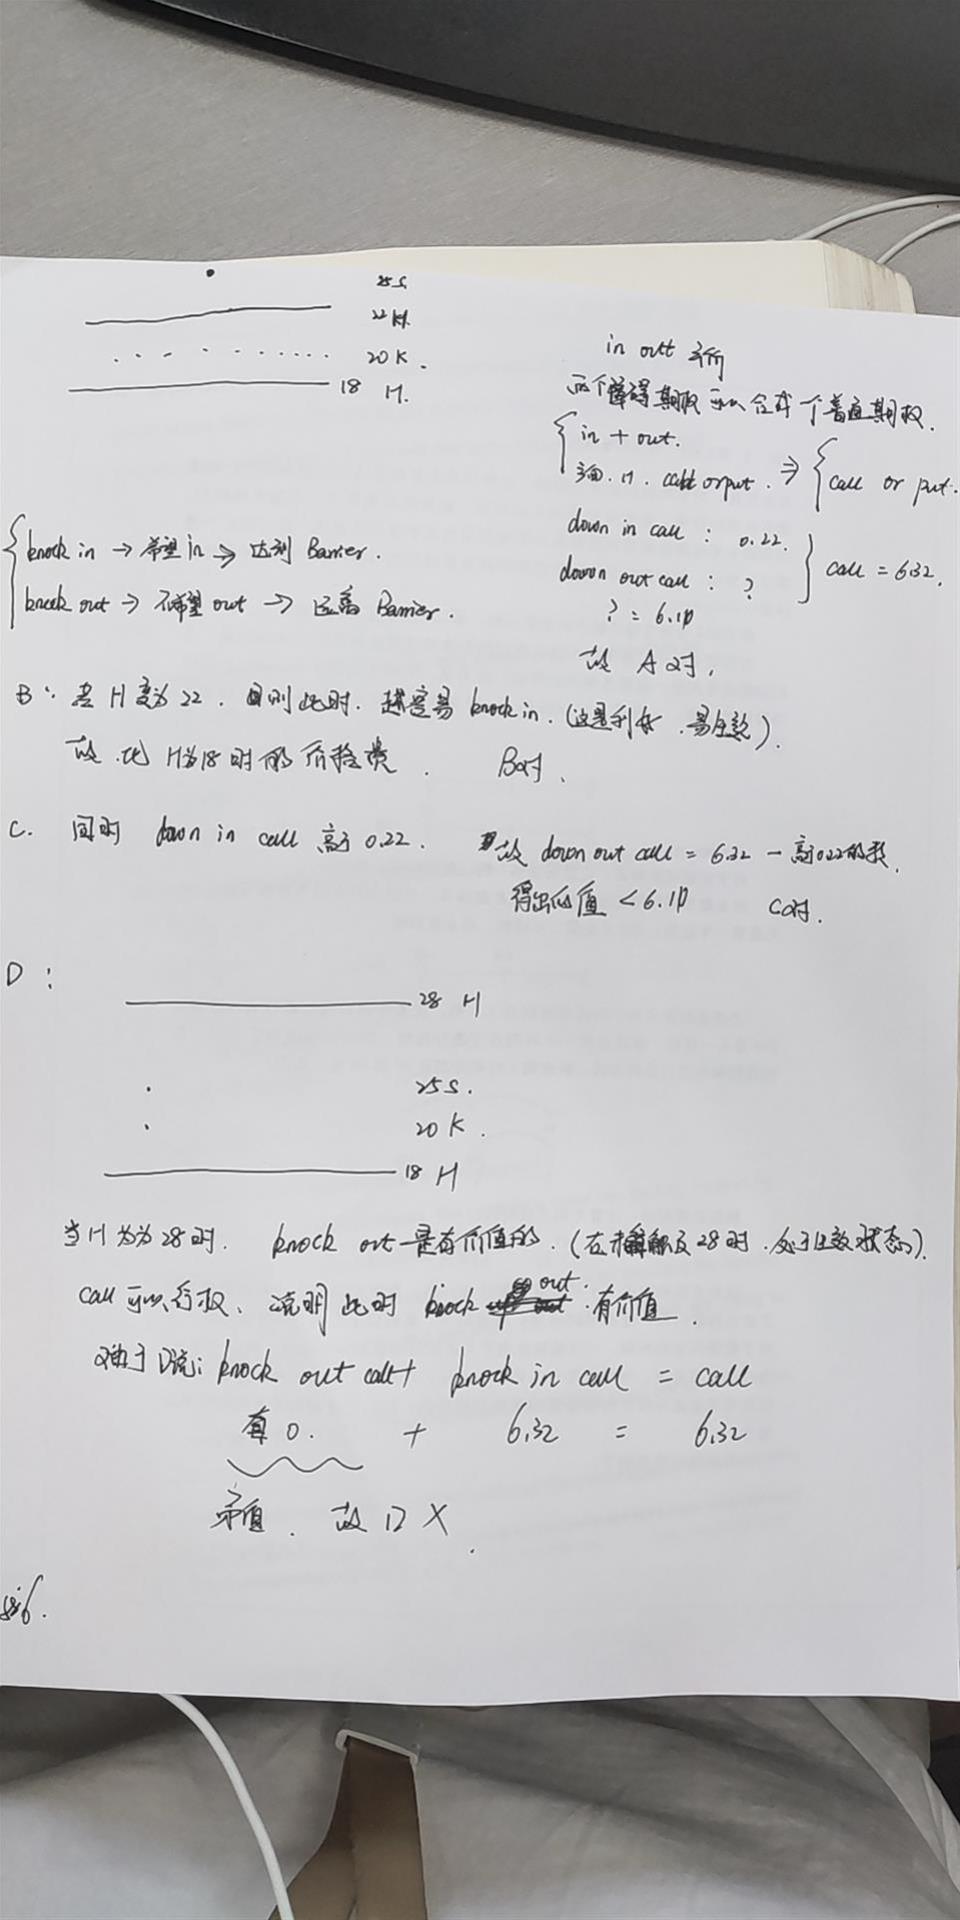 25 S.
22 H.
20 K.
18 H.
in out 平价
两个障碍期权可以合成一个普通期权.
in + out.
同.H. call or put. ⇒ { call or put.
down in call : 0.22.
down out call : ?
} call = 6.32.
? = 6.10
故 A 对,
knock in → 希望in → 达到 Barrier.
knock out → 不希望 out → 远离 Barrier.
B: 若 H 变为 22. 则此时. 越容易 knock in. (这是利好. 易生效).
故. 比 H为18 时的价格贵. B对.
C. 同时 down in call 高于 0.22. 故 down out call = 6.32 - 高于0.22的数.
得出的值 < 6.10 C对.
D:
28 H
25 S.
20 K.
18 H
当 H 为为 28 时. knock out 是有价值的. (在未触及 28 时. 处于生效状态).
call 可以行权、说明此时 knock out 有价值.
D说: knock out call + knock in call = call
0. + 6.32 = 6.32
故 D X.